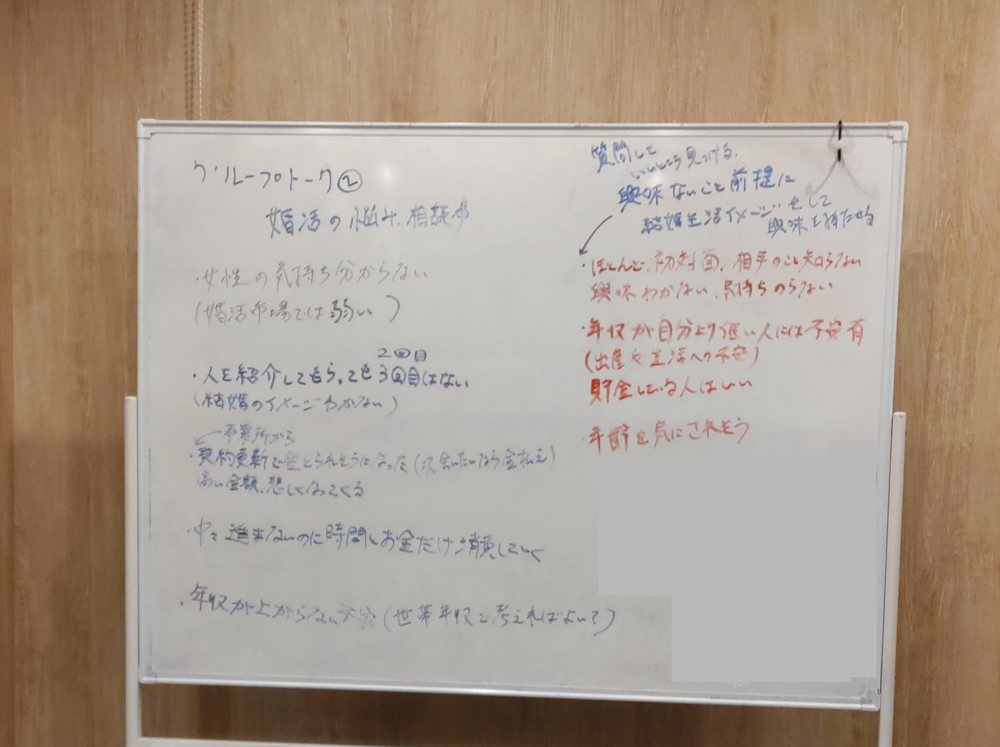 グループトーク②
婚活の悩み、相談等
・女性の気持ち分からない
(婚活市場では弱い)
2回目
・人を紹介してもらっても3回目はない
(結婚のイメージわかない)
事業所から
・契約更新で金とられそうになった(次会いたいなら金払え)
高い金額、悲しくなってくる
・中々進まないのに時間とお金だけ消費していく
・年収が上がらない不安(世帯年収で考えればよい?)
質問して
いいところ見つける、
興味ないこと前提に
結婚生活イメージをして
興味を持たせる
・ほとんど、初対面、相手のこと知らない
興味わかない、気持ちのらない
・年収が自分より低い人には不安有
(出産や生活への不安)
貯金している人はいい
・年齢を気にされそう